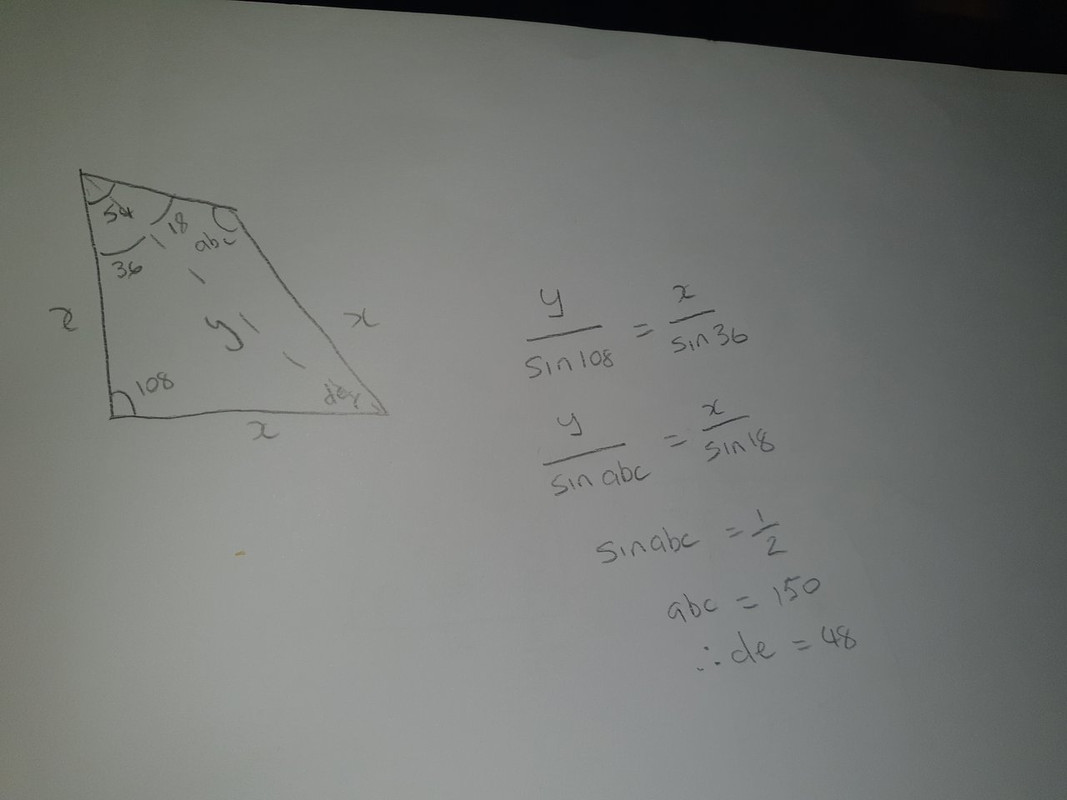 54
18
abc
36
x
y
x
108
x
y/sin108 = x/sin36
y/sin abc = x/sin18
sinabc = 1/2
abc = 150
∴ de = 48